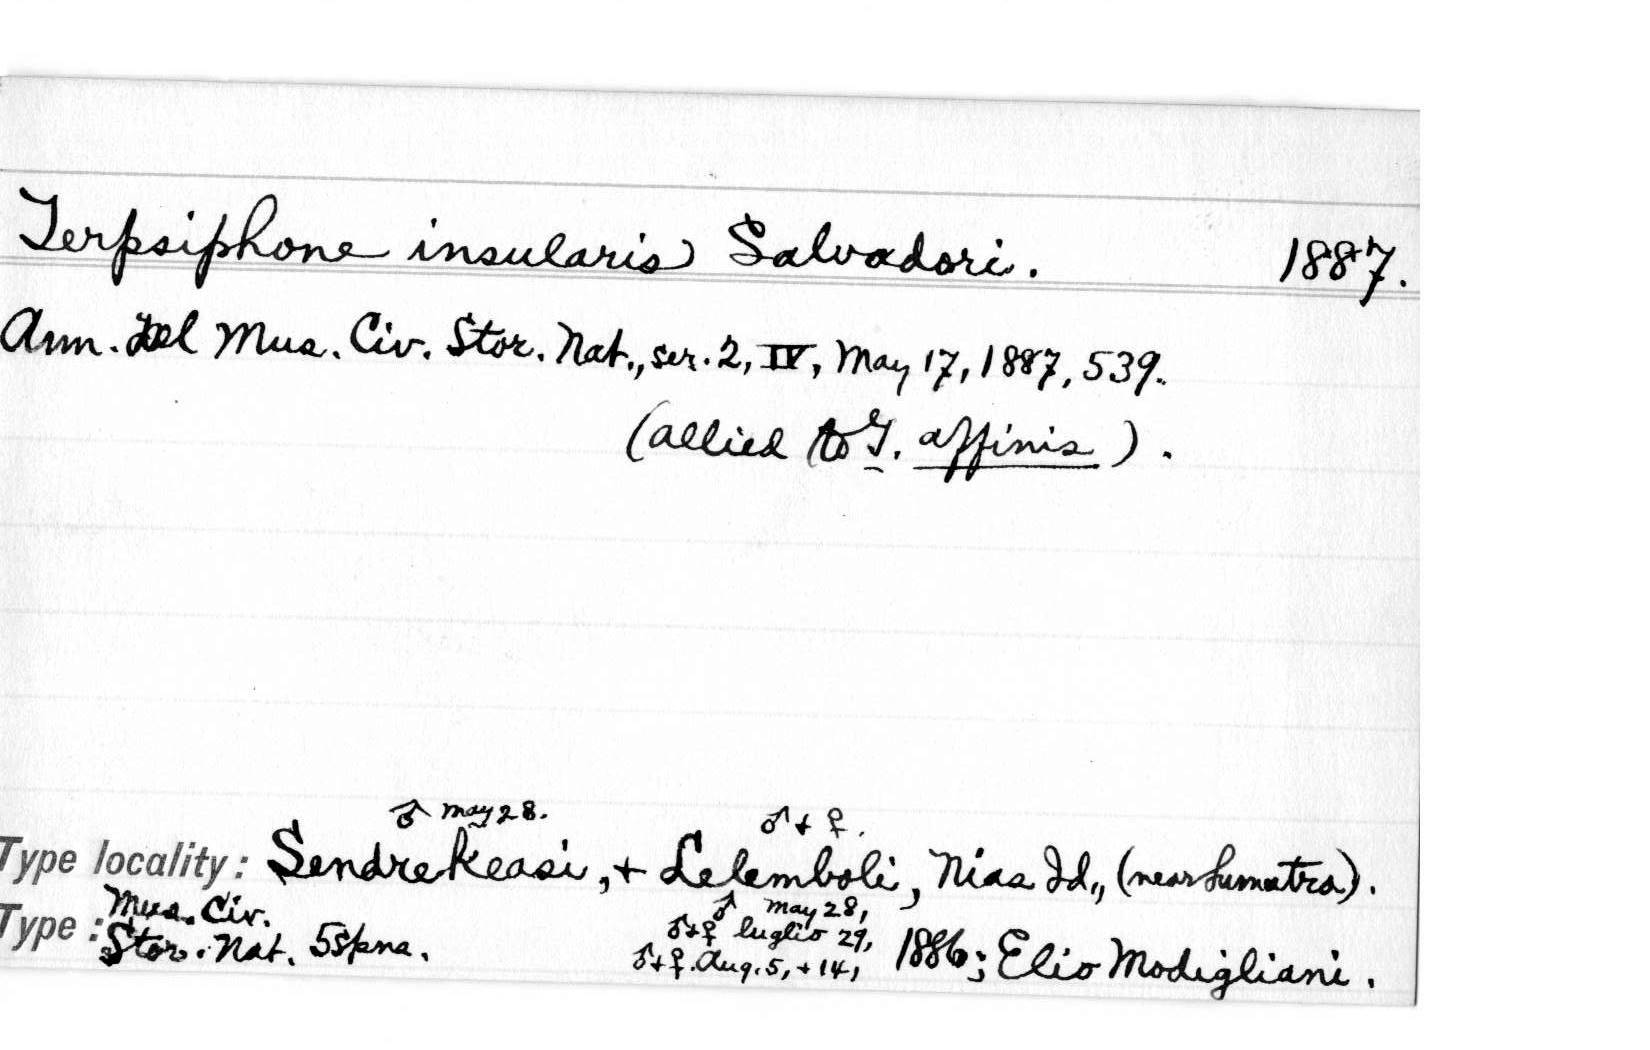 Terpsiphone insularis Salvadori. 1887.
Ann. Del Mus. Civ. Stor. Nat., ser. 2, IV, May 17, 1887, 539.
(allied to T. affinis).
♂ May 28. ♂ + ♀.
Type locality: Sendrekeasi, + Lelemboli, Nias Id., (near Sumatra).
Type: Mus. Civ. Stor. Nat. 5 spms.
♂ May 28,
♂+♀ luglio 29,
♂+♀. Aug. 5, + 14, 1886; Elio Modigliani.